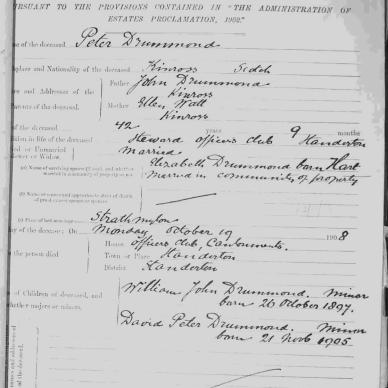 PURSUANT TO THE PROVISIONS CONTAINED IN "THE ADMINISTRATION OF
ESTATES PROCLAMATION, 1902."
of the deceased Peter Drummond
and Nationality of the deceased Kinross
Father John Drummond
and Addresses of the Kinross
of the deceased Mother Ellen Wall
Kinross
of the deceased 42 years 9 months
in life of the deceased Steward officers club Standerton
or Unmarried married
or Widow
Elizabeth Drummond born Hart
married in community of property
Strathmylon
of the deceased: On Monday October 19 1908
House officers club, Cantonments.
the person died Town or Place Standerton
District Standerton
of Children of deceased, and William John Drummond. Minor
majors or minors. born 26 October 1897.
David Peter Drummond. Minor
born 21 Novb 1905